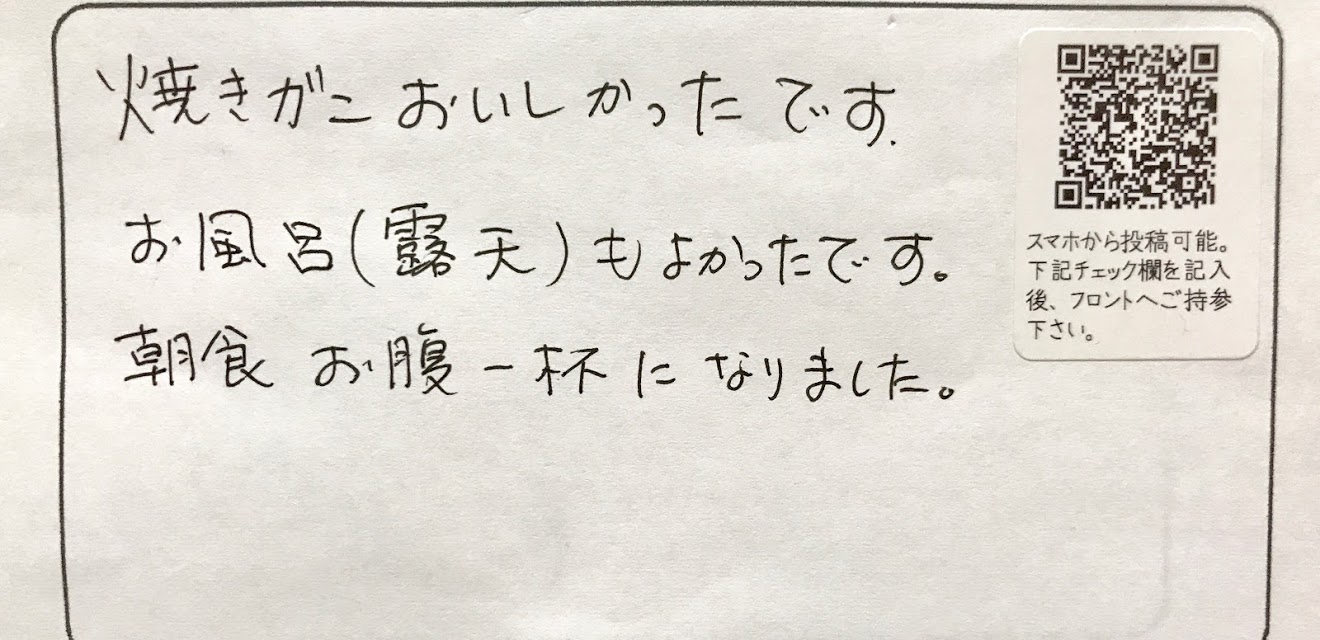 焼きガニ おいしかったです.
お風呂(露天)もよかったです。
朝食 お腹一杯になりました。
スマホから投稿可能。
下記チェック欄を記入
後、フロントへご持参
下さい。